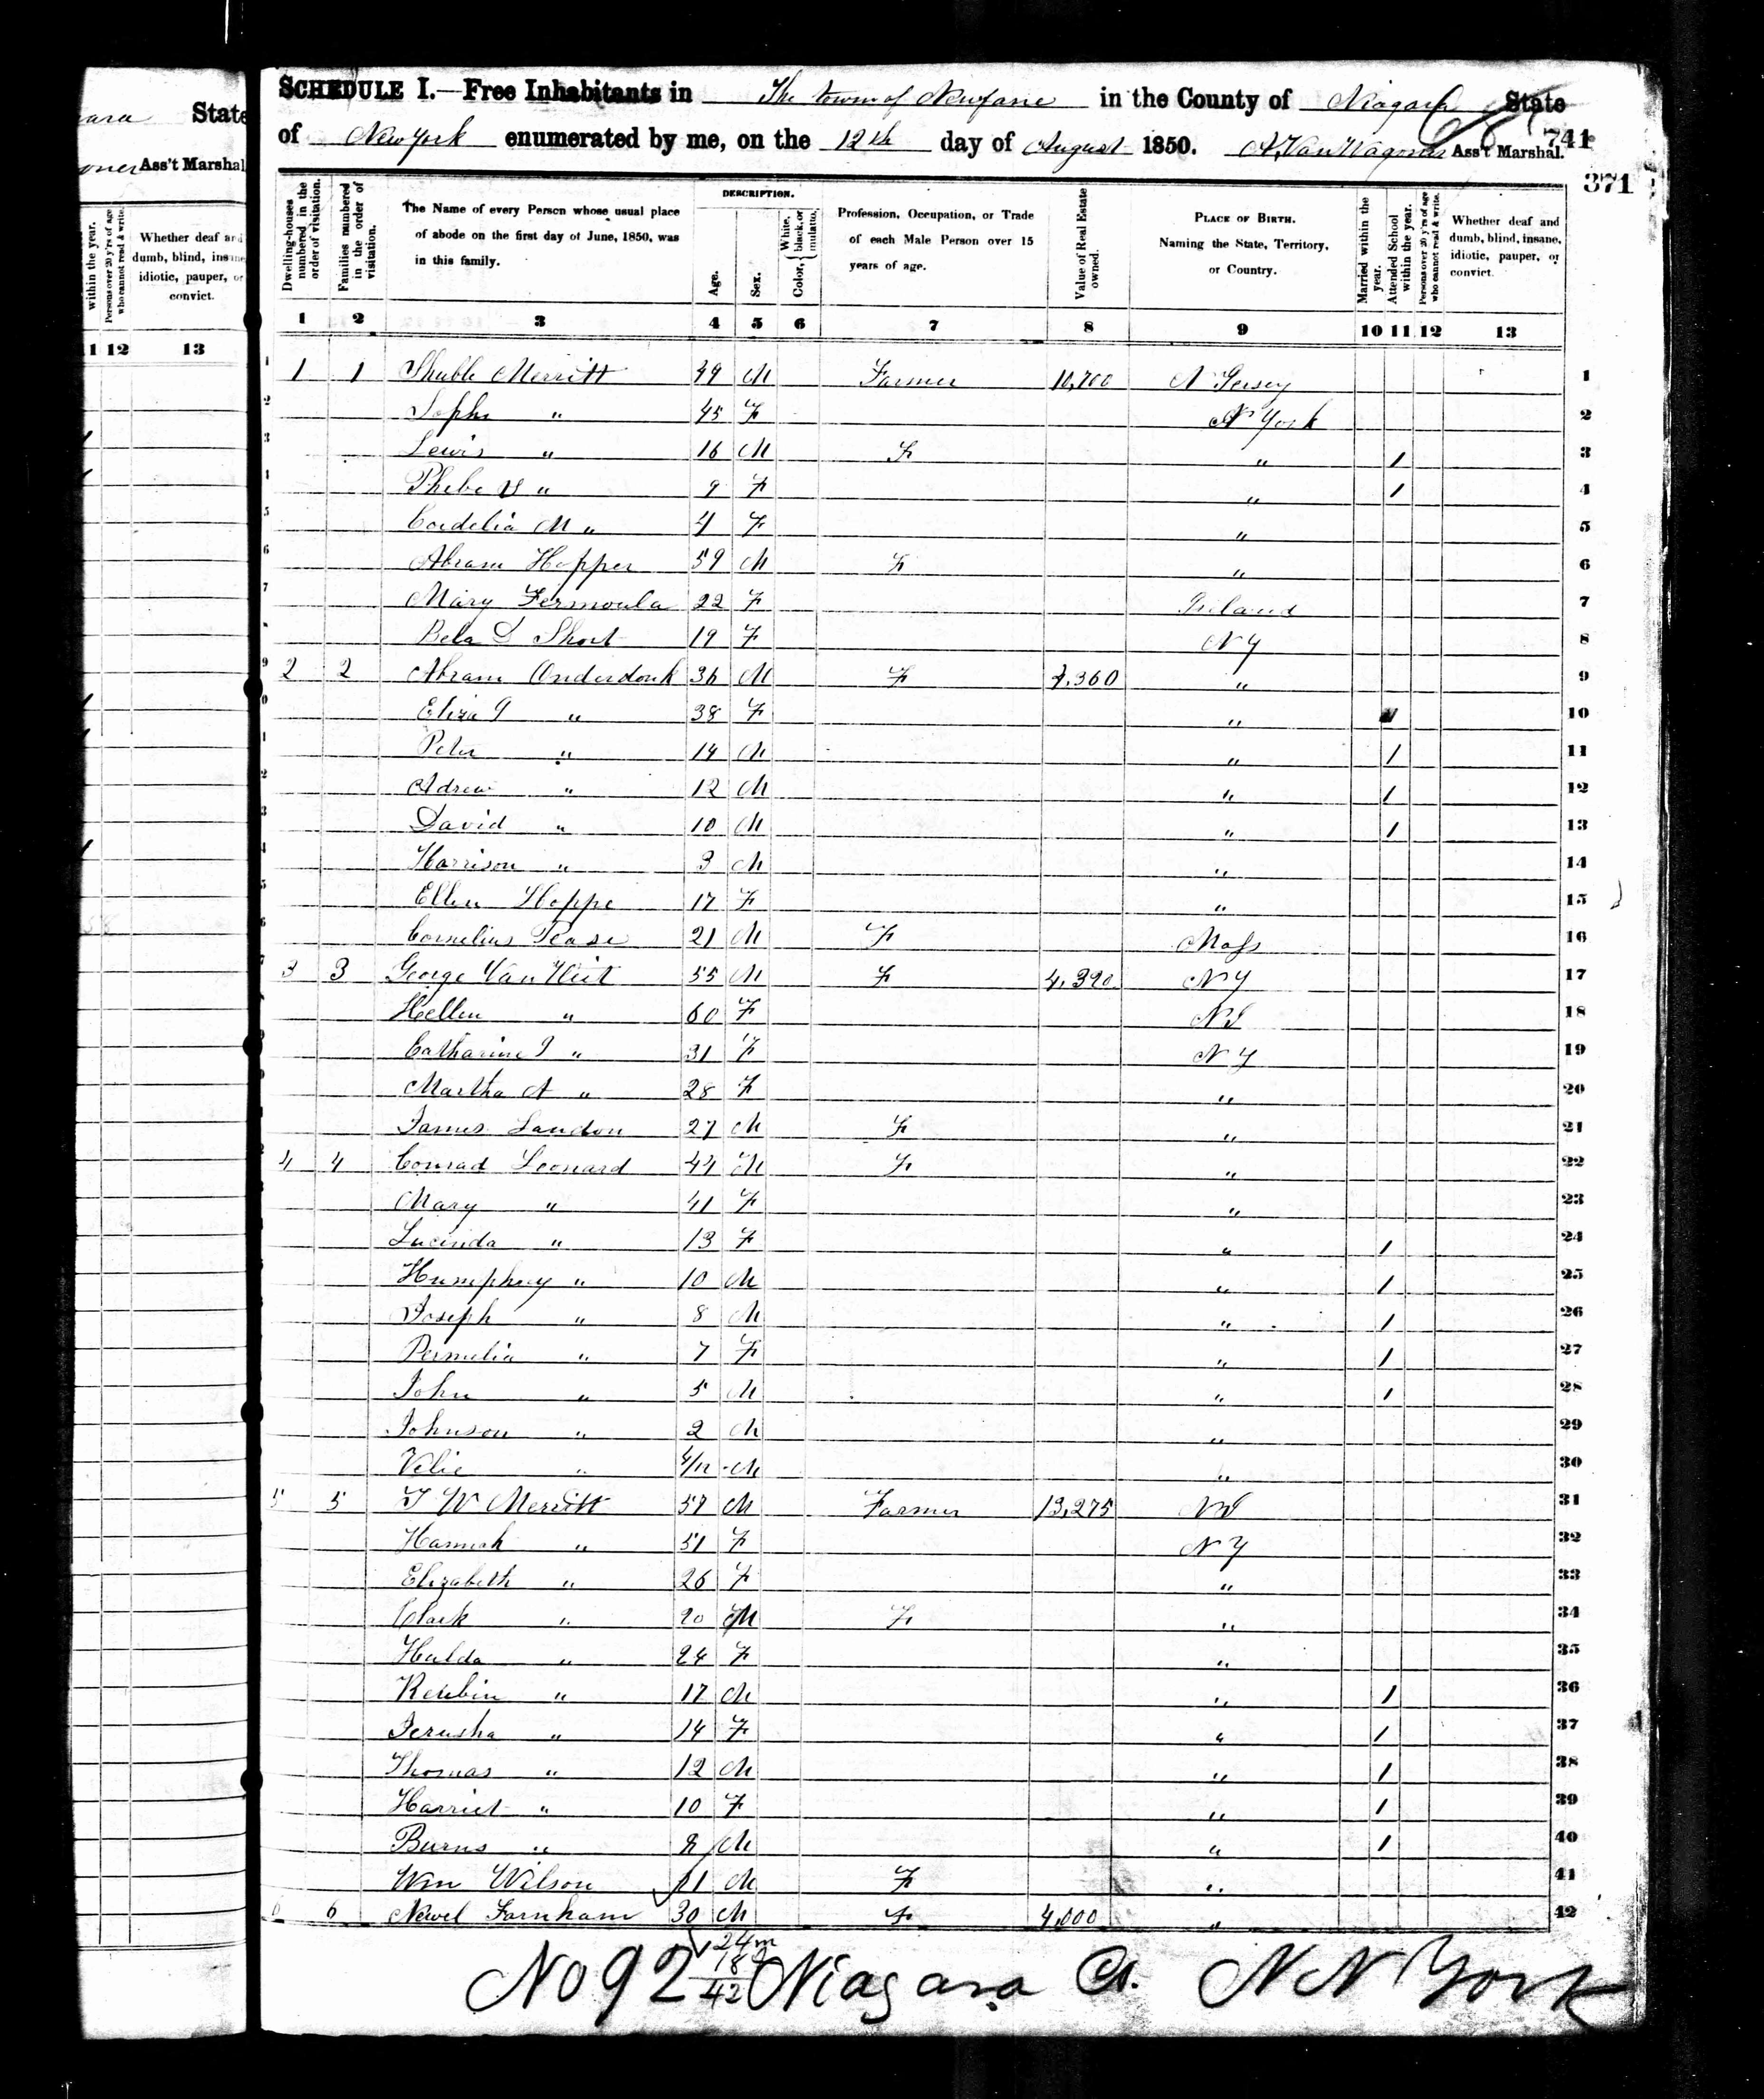 ara State
oner Ass't Marshal
within the year.
Persons over 20 y'rs of age who cannot read & write.
Whether deaf and dumb, blind, insane, idiotic, pauper, or convict.
1 12 13
SCHEDULE I.—Free Inhabitants in The town of Newfane in the County of Niagara State
of New York enumerated by me, on the 12th day of August 1850. A. Van Wagoner Ass't Marshal.
741
371
Dwelling-houses numbered in the order of visitation.
Families numbered in the order of visitation.
The Name of every Person whose usual place of abode on the first day of June, 1850, was in this family.
DESCRIPTION.
Age.
Sex.
Color, { White, black, or mulatto.
Profession, Occupation, or Trade of each Male Person over 15 years of age.
Value of Real Estate owned.
PLACE OF BIRTH. Naming the State, Territory, or Country.
Married within the year.
Attended School within the year.
Persons over 20 y'rs of age who cannot read & write.
Whether deaf and dumb, blind, insane, idiotic, pauper, or convict.
1 2 3 4 5 6 7 8 9 10 11 12 13
1 1 1 Shuble Merritt 49 M Farmer 10,700 N Jersey 1
2 Sophi " 45 F N York 2
3 Lewis " 16 M F " / 3
4 Phebe " 9 F " / 4
5 Cordelia M " 4 F " 5
6 Abram Hopper 59 M F " 6
7 Mary Fermoula 22 F Ireland 7
Bela D Short 19 F N Y 8
9 2 2 Abram Onderdonk 36 M F 7,360 " 9
0 Eliza J " 38 F " 10
1 Peter " 14 M " / 11
2 Adrew " 12 M " / 12
3 David " 10 M " / 13
4 Harrison " 3 M " 14
5 Ellen Hoppe 17 F " 15
6 Cornelius Pease 21 M F Mass 16
7 3 3 George Van Vliet 55 M F 4,390 N Y 17
Hellen " 60 F N J 18
Catharine J " 31 F N Y 19
Martha A " 28 F " 20
James Landon 27 M F " 21
4 4 Conrad Leonard 44 M F " 22
Mary " 41 F " 23
Lucinda " 13 F " / 24
Humphrey " 10 M " / 25
Joseph " 8 M " / 26
Permelia " 7 F " / 27
John " 5 M " / 28
Johnson " 2 M " 29
Velie " 4/12 M " 30
5 5 J W Merritt 57 M Farmer 13,275 N J 31
Hannah " 51 F N Y 32
Elizabeth " 26 F " 33
Clark " 20 M F " 34
Hulda " 24 F " 35
Reubin " 17 M " / 36
Jerusha " 14 F " / 37
Thomas " 12 M " / 38
Harriet " 10 F " / 39
Burns " 8 M " / 40
Wm Wilson 21 M F " 41
6 6 Newel Farnham 30 M F 4,000 " 42
24 m
18
42
No 92 Niagara Co. N N York